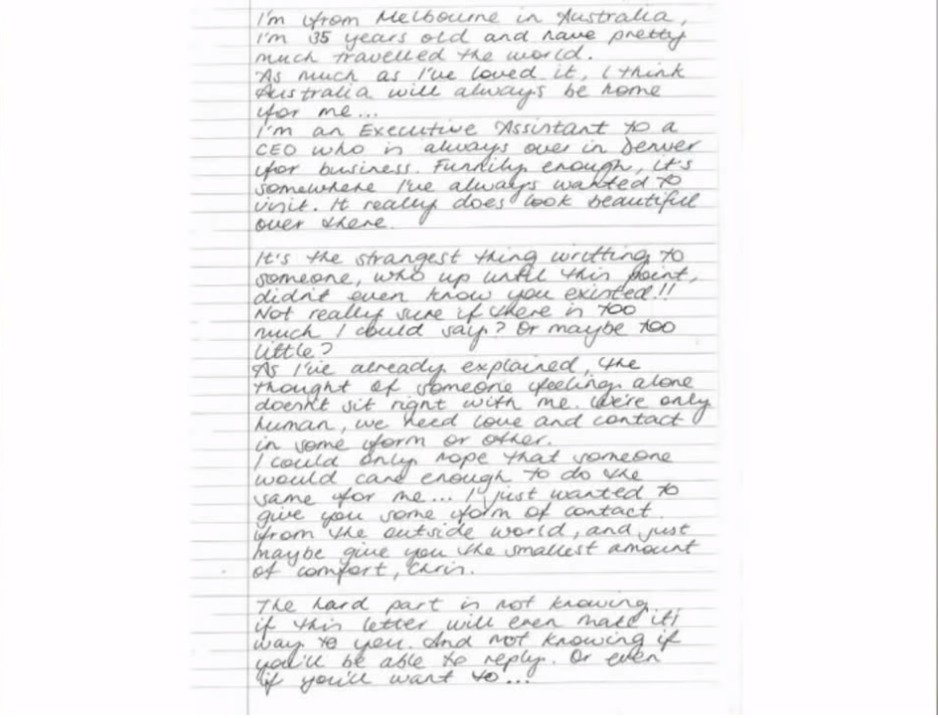 I'm from Melbourne in Australia,
I'm 35 years old and have pretty
much travelled the world.
As much as I've loved it, I think
Australia will always be home
for me...
I'm an Executive Assistant to a
CEO who is always over in Denver
for business. Funnily enough, it's
somewhere I've always wanted to
visit. It really does look beautiful
over there.
It's the strangest thing writting to
someone, who up until this point,
didn't even know you existed!!
Not really sure if there is too
much I could say? Or maybe too
little?
As I've already explained, the
thought of someone feeling alone
doesn't sit right with me. We're only
human, we need love and contact
in some form or other.
I could only hope that someone
would care enough to do the
same for me... I just wanted to
give you some form of contact
from the outside world, and just
maybe give you the smallest amount
of comfort, Chris.
The hard part is not knowing
if this letter will even make it's
way to you. And not knowing if
you'll be able to reply. Or even
if you'll want to...